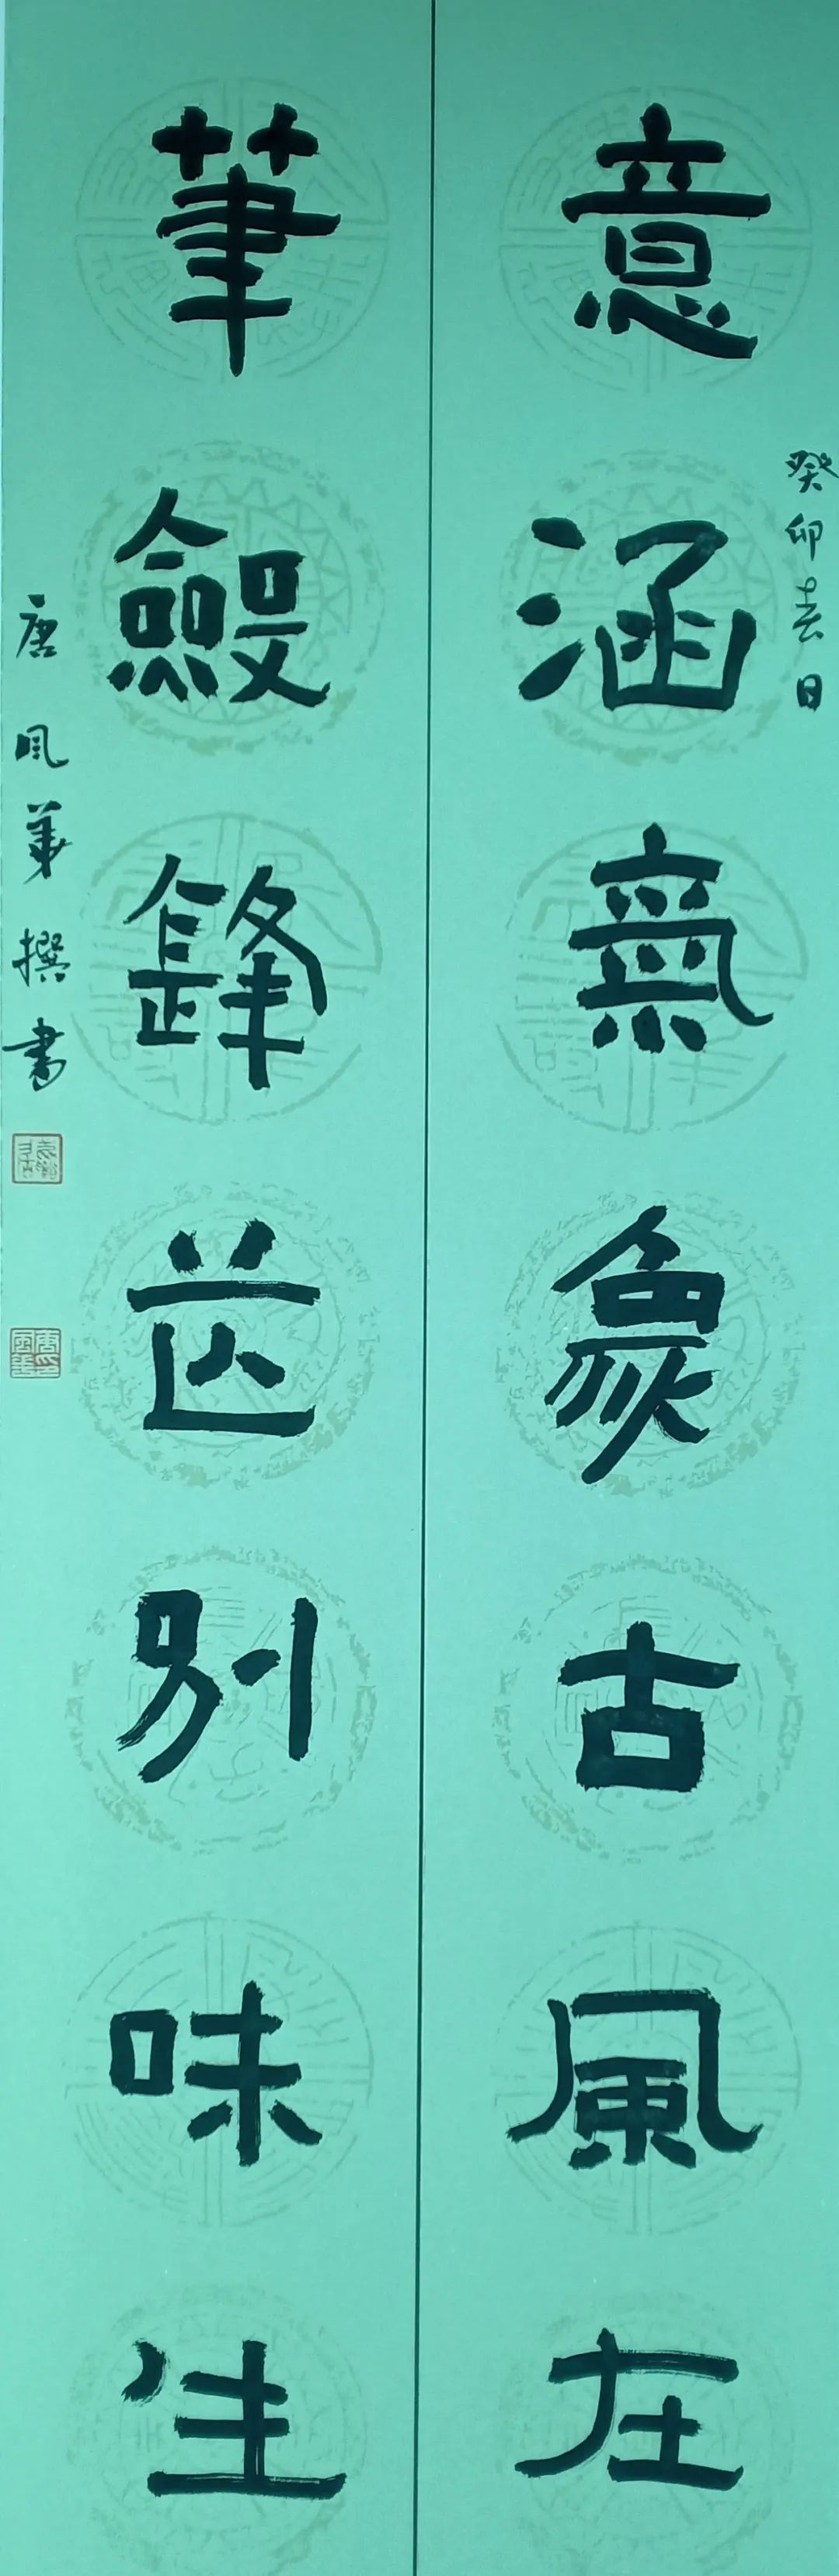 癸卯春日
意涵氣象古風在
筆斂鋒芒別味生
唐风華撰書